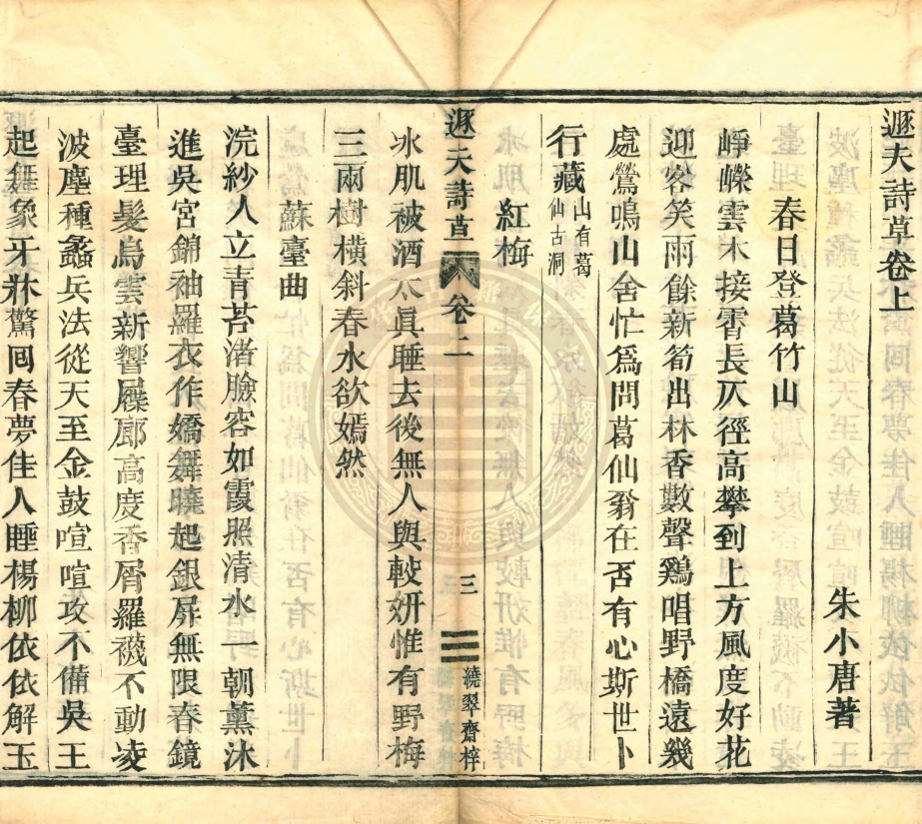 遯夫詩草卷上
朱小唐著
春日登葛竹山
崢嶸雲木接霄長仄徑高攀到上方風度好花
迎客笑雨餘新筍出林香數聲鷄唱野橋遠幾
處鶯鳴山舍忙爲問葛仙翁在否有心斯世卜
行藏山有葛
仙古洞
紅梅
遯夫詩草 卷二 三 繞翠齋梓
冰肌被酒不眞睡去後無人與較妍惟有野梅
三兩樹橫斜春水欲嫣然
蘇臺曲
浣紗人立青苔渚臉容如霞照清水一朝薰沐
進吳宮錦袖羅衣作嬌舞曉起銀屛無限春鏡
臺理髮烏雲新響屧廊高度香屑羅襪不動凌
波塵種蠡兵法從天至金鼓喧喧攻不備吳王
起舞象牙牀驚回春夢佳人睡楊柳依依解玉